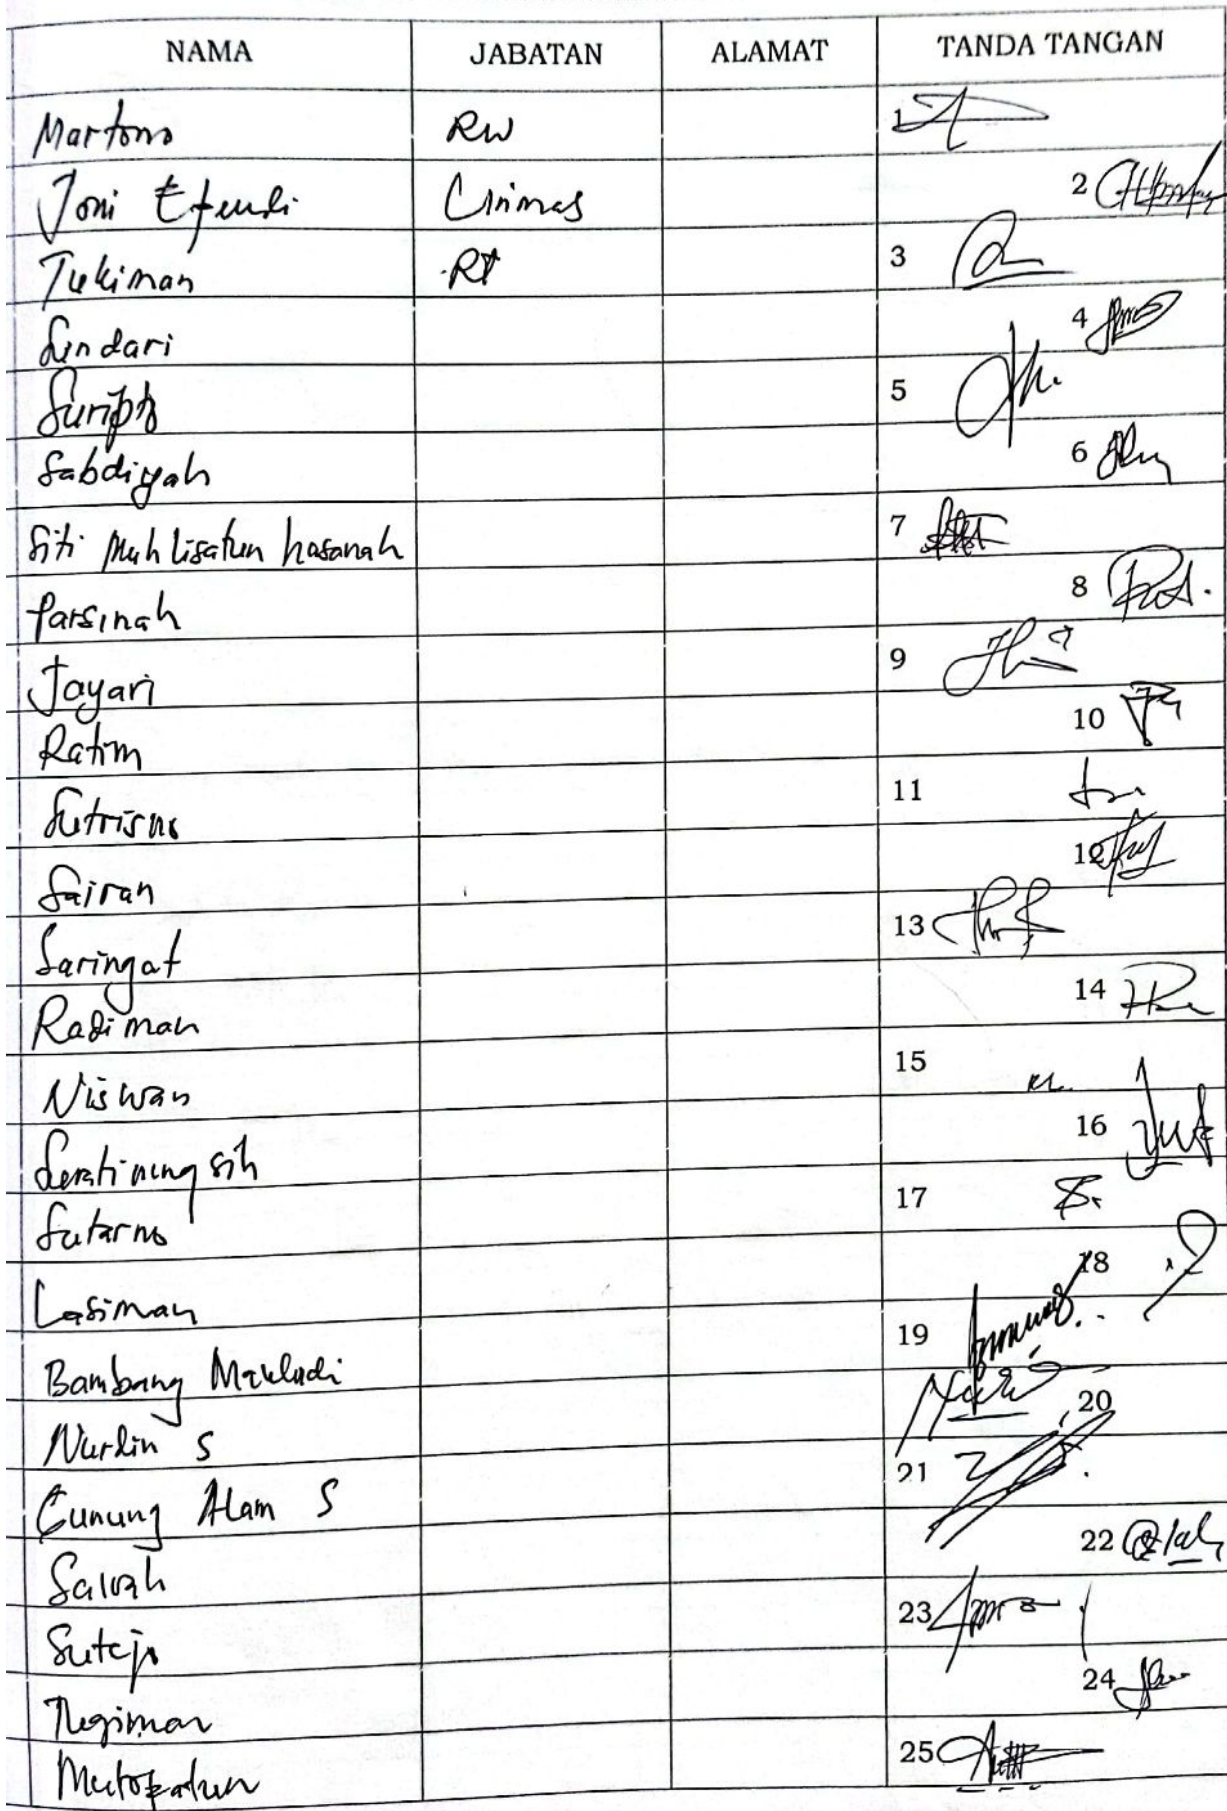 NAMA JABATAN ALAMAT TANDA TANGAN
Martono RW 1
Joni Efendi Linmas 2
Tukiman RT 3
Sundari 4
Suripto 5
Sabdiyah 6
Siti Muhlisatun hasanah 7
Parsinah 8
Jayari 9
Ratim 10
Sutrisno 11
Sairan 12
Saringat 13
Radiman 14
Niswan 15
16
Sutarno 17
Lasiman 18
Bambang Mauludi 19
Nurdin S 20
Gunung Alam S 21
Sawah 22
Sutejo 23
24
25